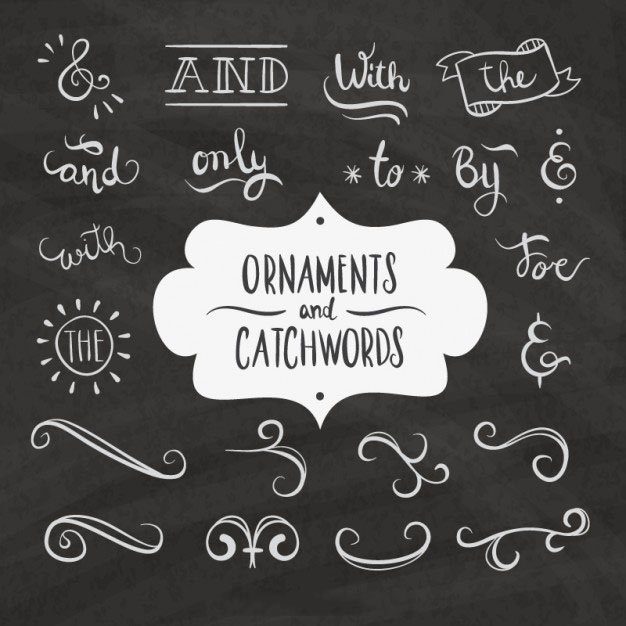 &
AND
With
the
and
only
*to*
By
&
with
For
ORNAMENTS
and
CATCHWORDS
THE
&